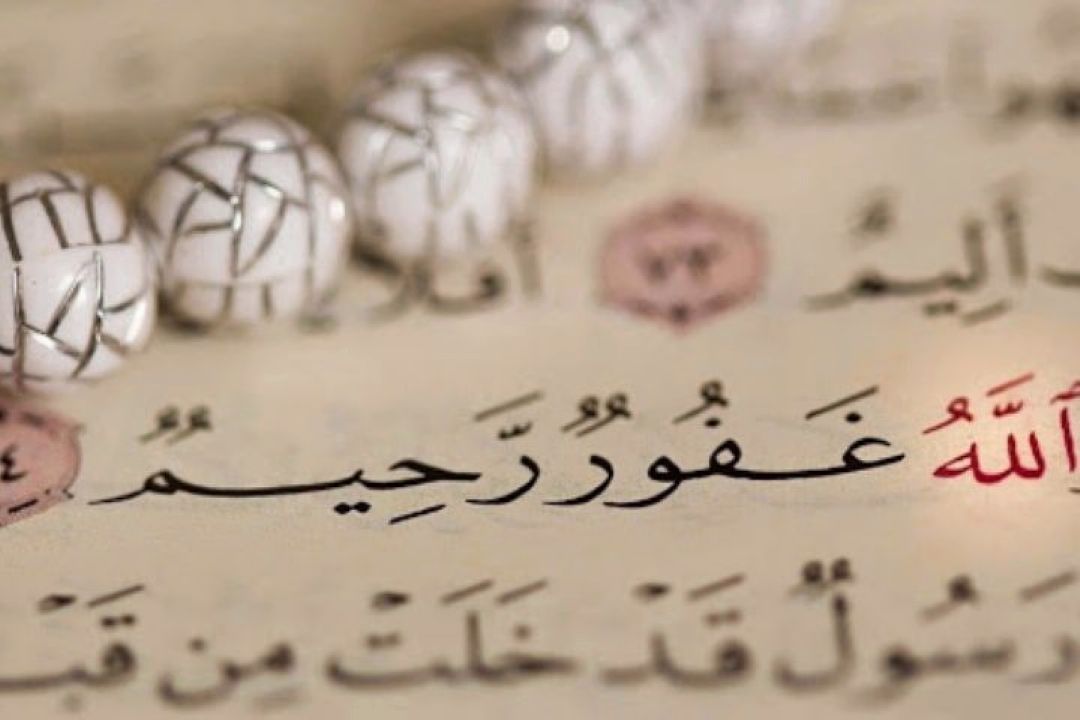 أَلِيمٌ ٧٣ أَفَلَا
ٱللَّهُ غَفُورٌ رَّحِيمٌ ٤
رَسُولٌ قَدْ خَلَتْ مِن قَبْ